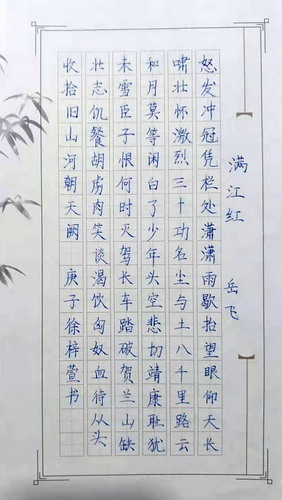 满江红 岳飞
怒发冲冠凭栏处潇潇雨歇抬望眼仰天长
啸壮怀激烈三十功名尘与土八千里路云
和月莫等闲白了少年头空悲切靖康耻犹
未雪臣子恨何时灭驾长车踏破贺兰山缺
壮志饥餐胡虏肉笑谈渴饮匈奴血待从头
收拾旧山河朝天阙 庚子徐梓萱书